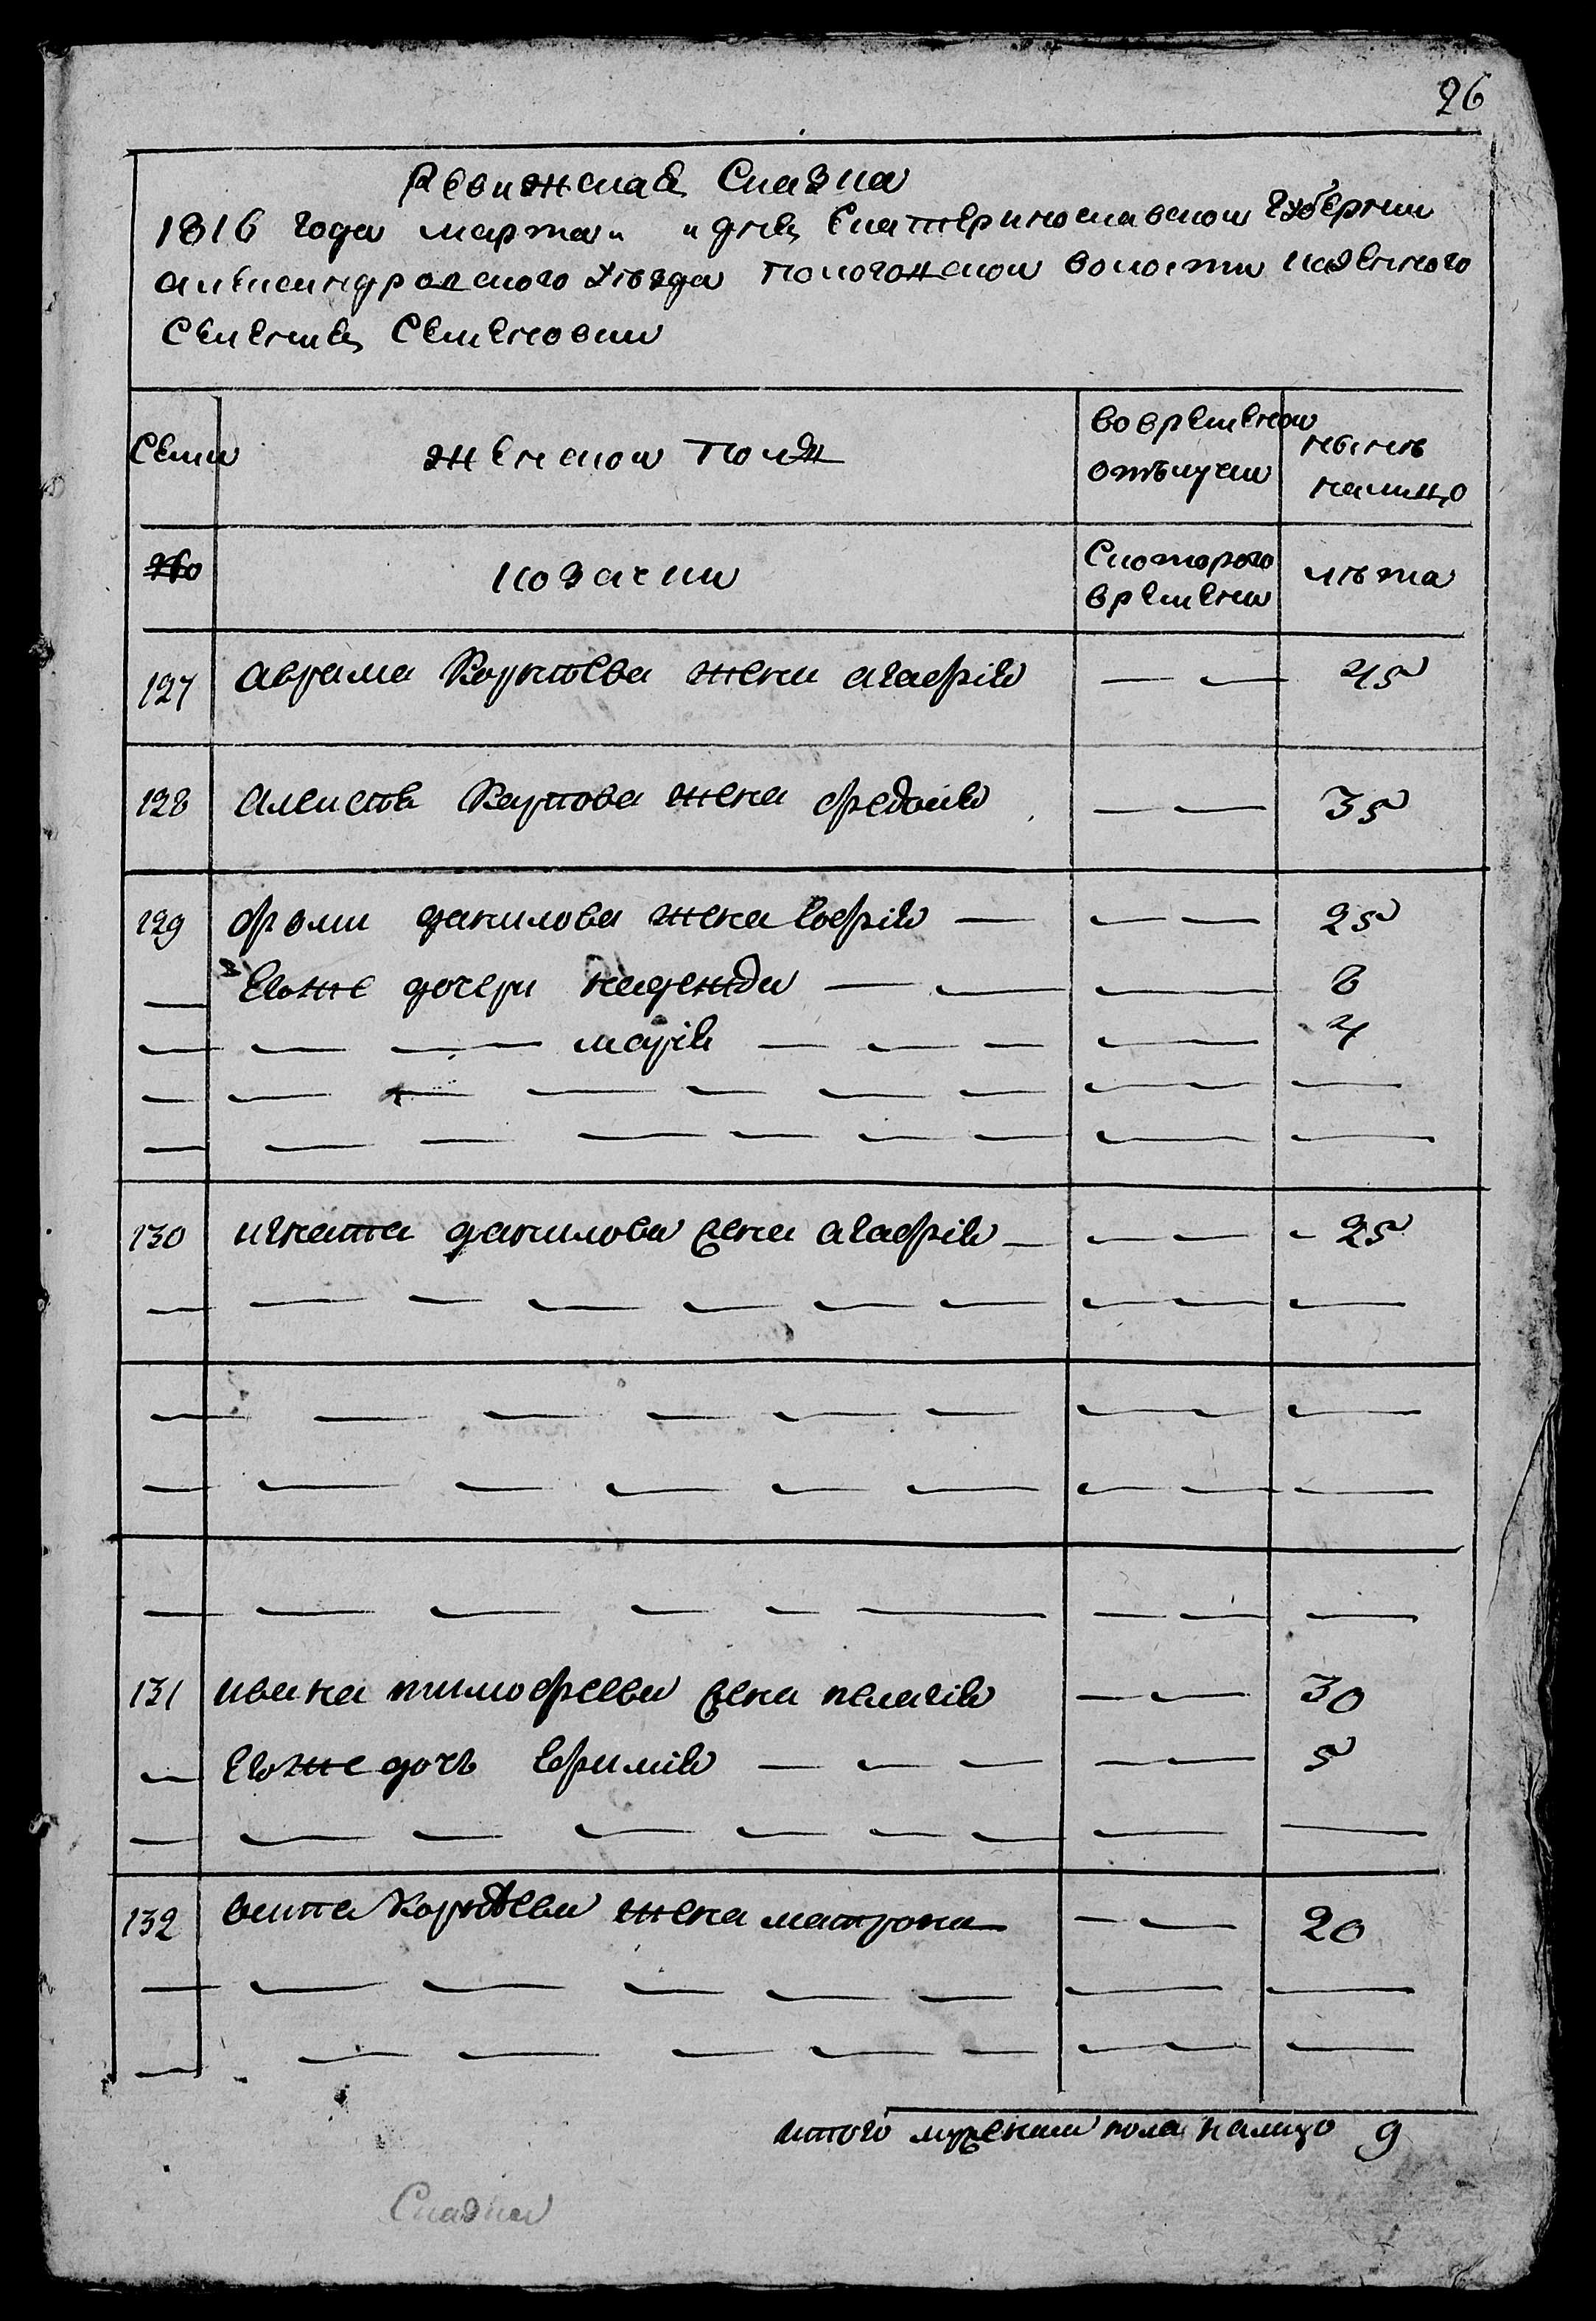 26
Ревижская Сказка
1816 года марта „ „ дня Екатеринославской Губернии
Александровского уезда Пологожской волости казенного
Селения Семеновки
Семи женской полъ во временой отълучки нынъ налицо
козачки Скоторого времени лъта
127 аврама Корнъева жена агафія — — 45
128 алексъя Карпова жена федосія — — 35
129 фоми данилова жена софія — — — 25
Егоже дочери надежда — — — 6
— — — марія — — — — 4
130 игната данилова жена агафія — — — 25
131 ивана тимофеева жена пелагія — — 30
— Егоже дочъ ефимія — — — — — 5
132 осипа Корнъева жена матрона — — 20
итого мужеским пола налицо 9
Сказка